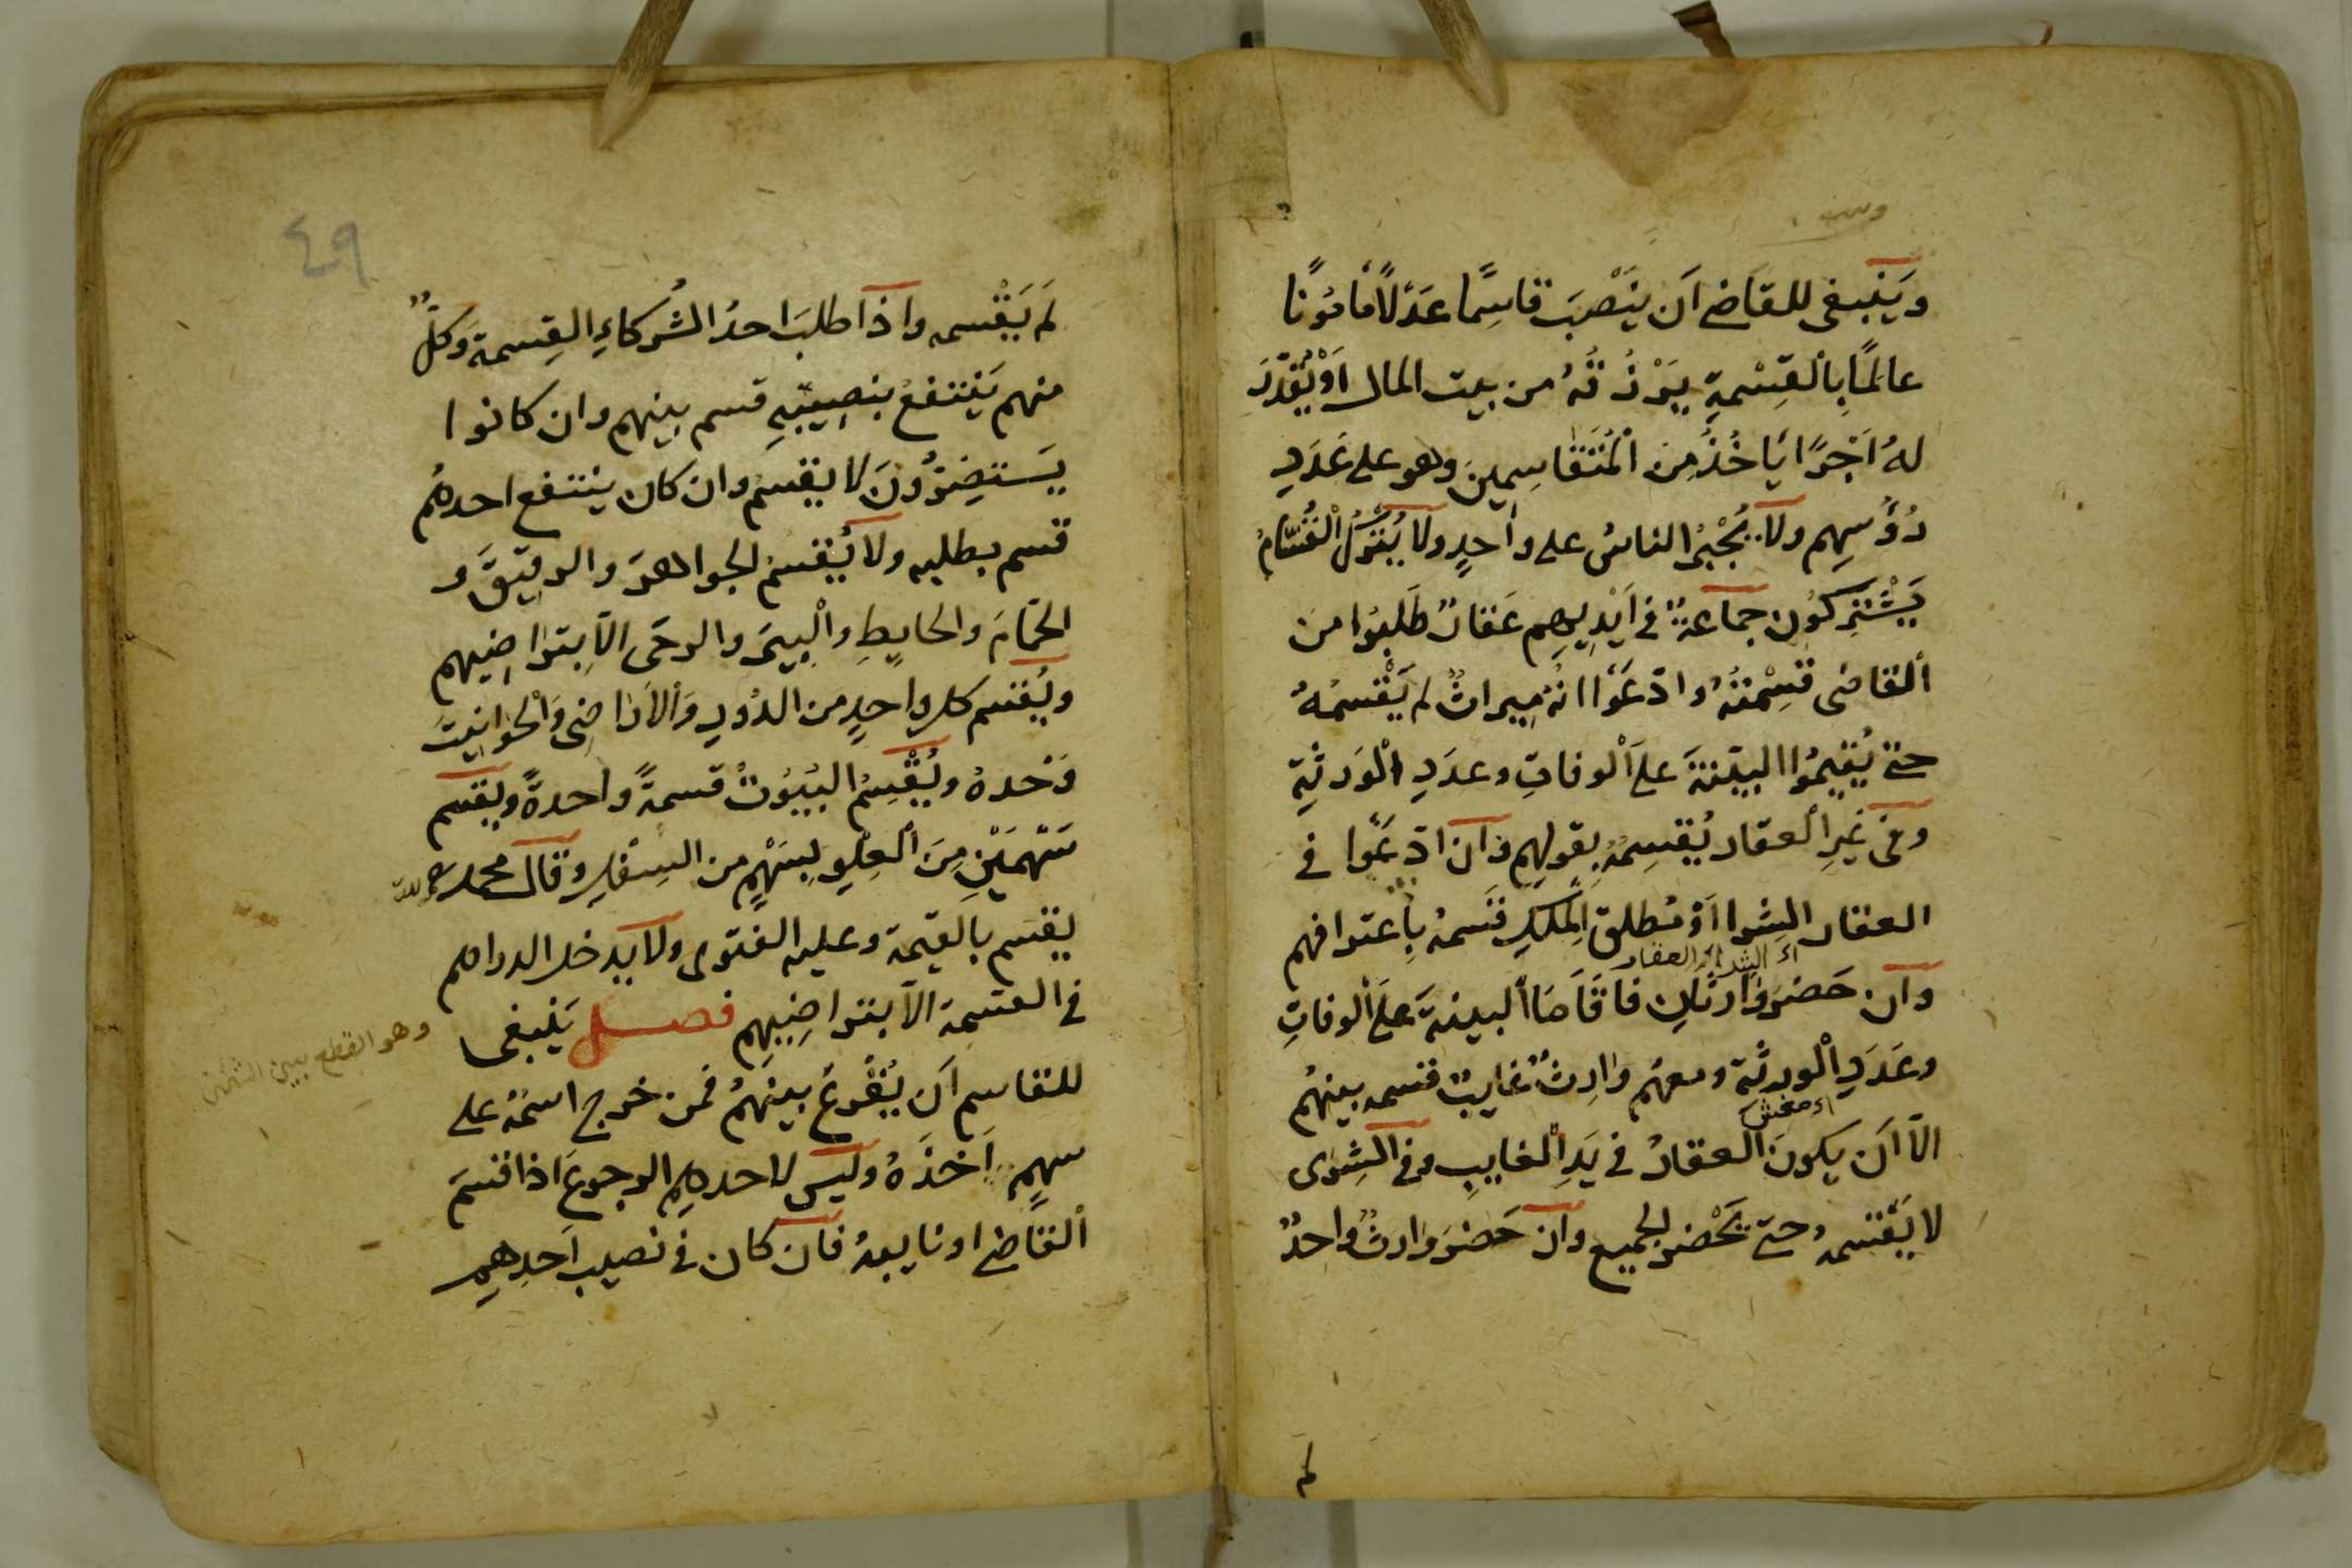 وَيَنبغى للقاضى اَن يَنْصِبَ قاسِمًا عَدْلًا مَأمُونًا
عالمًا بِالْقِسْمَةِ يَرْزُقُهُ من بيت المال اَوْ يُقَدِّرَ
لهُ اَجْرًا يَأخُذُ مِن المُتَقاسِمينَ وهو على عَدَدِ
رُؤُسِهِم ولا يُجْبِرُ الناسُ على واحدٍ ولا يُتْرَكُ الْقُسَّامُ
يَشْتَرِكُون جماعةٌ فى اَيْديهِم عَقارٌ طَلَبُوا من
ألقاضى قِسْمَتَهُ وادّعَوْا انّهُ ميراثٌ لم يَقْسِمْهُ
حتّى يُقيمُوا البيّنةَ على الْوفاتِ وعدَدِ الْوَرثةِ
وفى غيرِ العقار يُقسِمُهُ بِقولِهِم وان ادّعَوْا فى
العقار الشِرا اَوْ مُطلق المِلكِ قَسَمهُ بِاعترافهم
اى الشرا اى العقار
وان حَضرَ وارثانِ فاقاَمَا ألبينةَ على ألوفاتِ
وعَدَدِ الْورثة ومعهُم وارِثٌ غايبٌ قسمه بينهُم
الّا اَن يكونَ العقارُ فى يَدِ الْغايبِ وفى الشِرٰى
لا يَقْسمه حتّى يَحْضرَ الجميع وان حَضرَ وارثٌ واحدٌ
لم
٤٩
لَم يَقْسمه واذا طلبَ احدُ الشُركاءِ القِسمةَ وَكلٌّ
منهم يَنتفعُ بنصِيبِهِ قسم بينهم وان كانوا
يَستضِرُّونَ لا يقسم وان كان ينتفع احدهُم
قسم بطلبه ولا يُقسم الجواهرَ والرقيقَ و
الحمّامَ والحايِطِ والْبِيرَ والرحَى الّا بِتَراضيهم
ويُقسم كل واحدٍ من الدُورِ وَالاَراضِى وَالْحَوانيتَ
وَحْدهُ ويُقْسِمُ البُيُوتُ قسمةً واحدةً ويقسم
سَهْمَيْنِ مِنَ الْعِلْوِ لِسَهْمٍ من السِفْلِ وقال محمد رحمه الله
يقسَم بالقيمة وعليه الفتوى ولا يدخل الدراهم
فى القسمة الّا بتراضِيهِم فصل يَنبغى
وهو القطع بين
للقاسم اَن يُقْرِعَ بينهُم فمن خرج اسمُهُ على
سهمٍ اَخذَهُ وليس لاحدهِم الرجوعَ اذا قسمَ
ألقاضى او نايبهُ فان كان فى نصيب اَحدِهِم